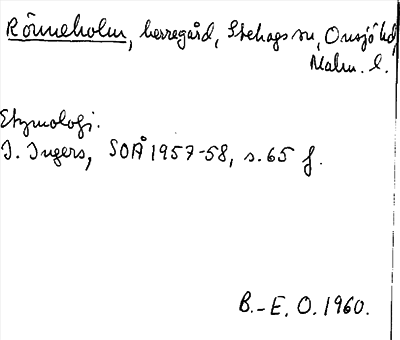 Rönneholm, herregård, Stehags sn, Onsjö hd,
Malm. l.
Etymologi.
I. Ingers, SOÅ 1957-58, s. 65 f.
B.-E. O. 1960.